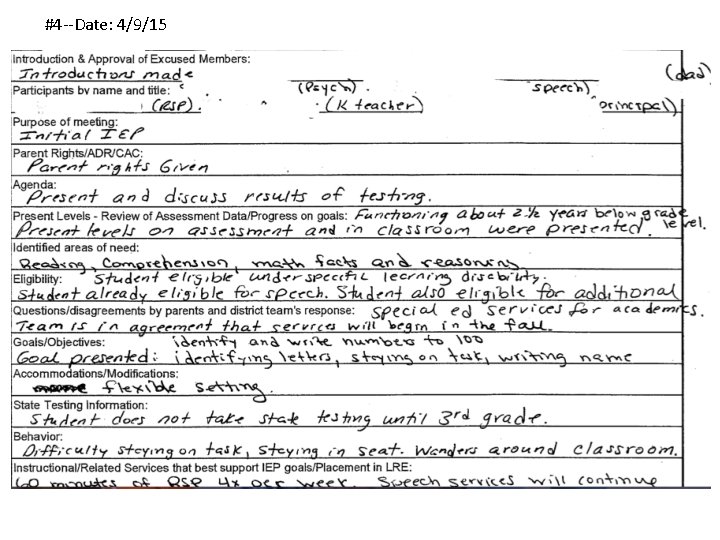 #4--Date: 4/9/15
Introduction & Approval of Excused Members:
Introductions made (dad)
Participants by name and title: (Psych). speech)
(RSP). (K teacher) principal)
Purpose of meeting:
Initial IEP
Parent Rights/ADR/CAC:
Parent rights Given
Agenda:
Present and discuss results of testing.
Present Levels - Review of Assessment Data/Progress on goals: Functioning about 2 ½ years below grade level.
Present levels on assessment and in classroom were presented.
Identified areas of need:
Reading, Comprehension, math facts and reasoning
Eligibility: Student eligible under specific learning disability.
Student already eligible for speech. Student also eligible for additional
Questions/disagreements by parents and district team's response: special ed services for academics.
Team is in agreement that services will begin in the fall.
Goals/Objectives: identify and write numbers to 100
Goal presented: identifying letters, staying on task, writing name
Accommodations/Modifications:
flexible setting.
State Testing Information:
Student does not take state testing until 3rd grade.
Behavior:
Difficulty staying on task, staying in seat. Wanders around classroom.
Instructional/Related Services that best support IEP goals/Placement in LRE:
60 minutes of RSP 4x per week. Speech services will continue